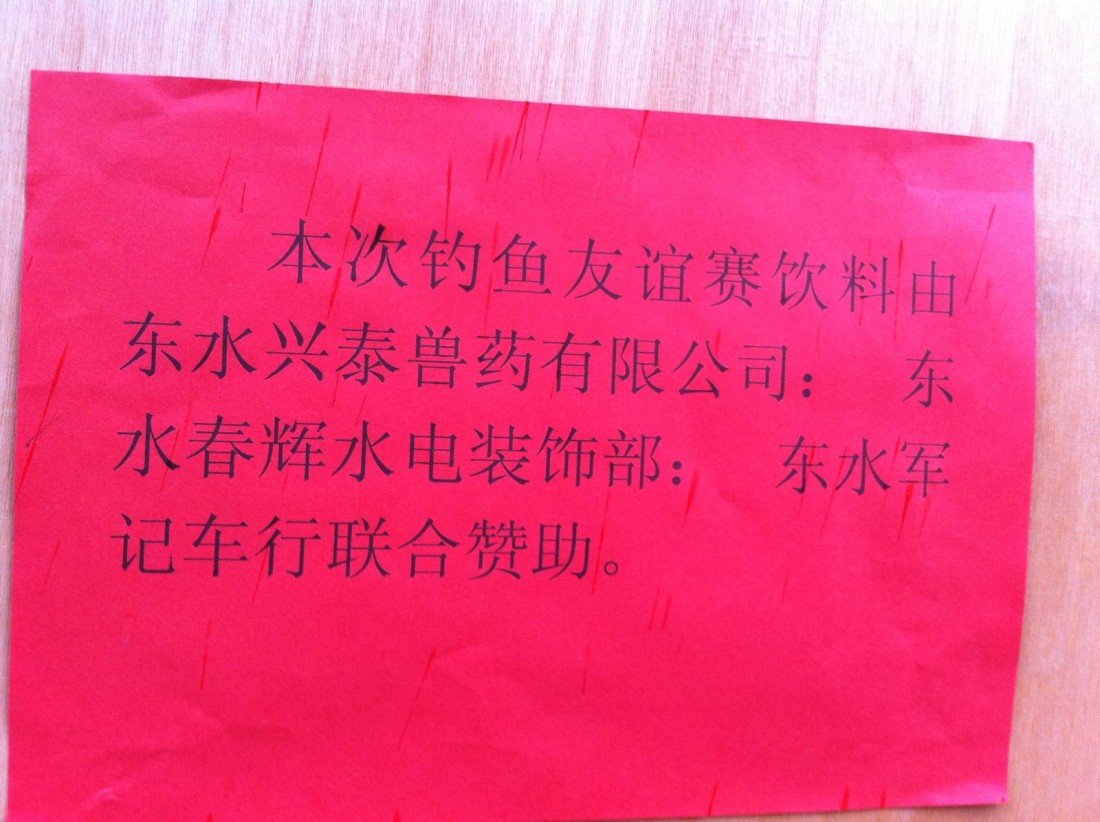 本次钓鱼友谊赛饮料由
东水兴泰兽药有限公司： 东
水春辉水电装饰部： 东水军
记车行联合赞助。